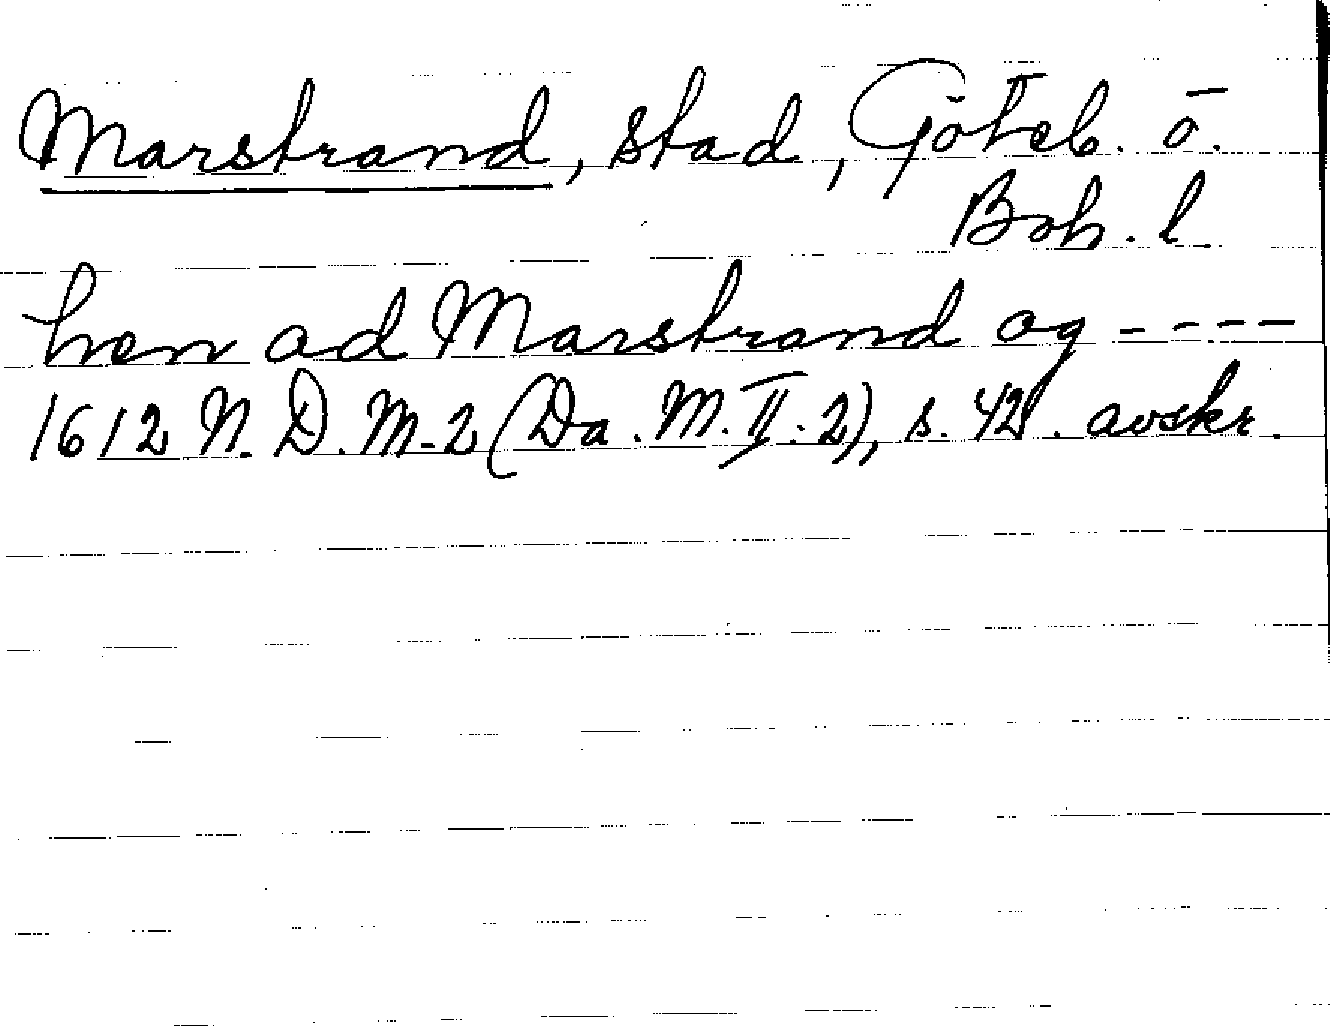 Marstrand, stad, Göteb. o.
Boh. l
hen ad Marstrand og - - - -
1612 N. D. M-2 (Da. M. II. 2), s. 42. avskr.